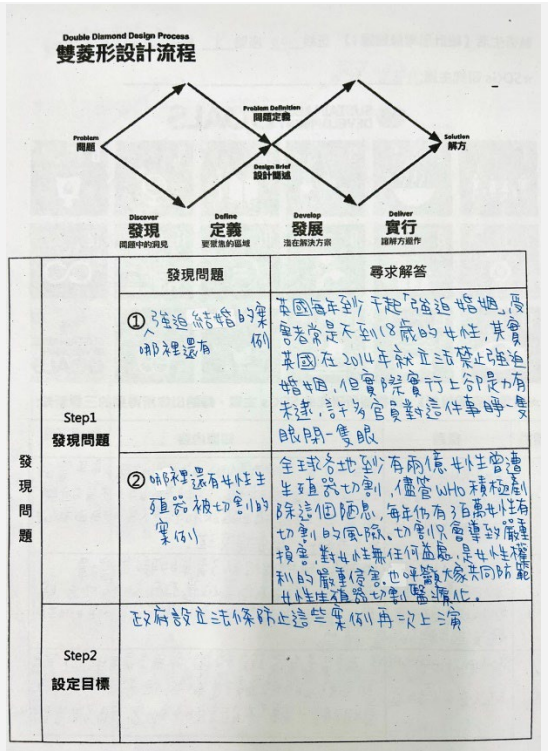 Double Diamond Design Process
雙菱形設計流程
Problem Definition
問題定義
Problem
問題
Solution
解方
Design Brief
設計簡述
Discover
發現
問題中的洞見
Define
定義
要聚焦的區域
Develop
發展
潛在解決方案
Deliver
實行
讓解方運作
發現問題
尋求解答
發現問題
Step1
發現問題
① 強迫結婚的案例
哪裡還有
英國每年至少千起「強迫婚姻」受
害者常是不到18歲的女性,其實
英國在2014年就立法禁止強迫
婚姻,但實際實行上卻是力有
未逮,許多官員對這件事睜一隻
眼閉一隻眼
② 哪裡還有女性生
殖器被切割的
案例
全球各地至少有兩億女性曾遭
生殖器切割,儘管WHO積極剷
除這個陋息,每年仍有3百萬女性有
切割的風險。切割只會導致嚴重
損害,對女性無任何益處,是女性權
利的嚴重侵害。也呼籲大家共同防範
女性生殖器切割醫療化。
Step2
設定目標
政府設立法條防止這些案例再次上演